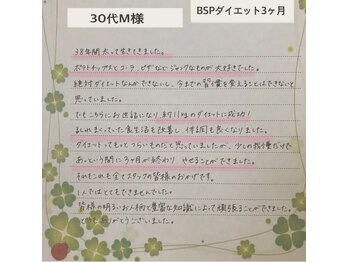 30代M様
BSPダイエット3ヶ月
38年間太って生きてきました。
ポテトチップスとコーラ、ピザなどジャンクなものが大好きでした。
絶対ダイエットなんかできないし、今までの習慣を変えることはできないと
思っていました。
でもこちらにお世話になり、約11kgのダイエットに成功!
乱れまくっていた食生活も改善し、体調も良くなりました。
ダイエットってもっとつらいものだと思っていましたが、少しの我慢だけで
あっという間に3ヶ月が終わり、やせることができました。
それもこれも全てスタッフの皆様のおかげです。
1人ではとてもできませんでした。
皆様の明るいお人柄と豊富な知識によって頑張ることができました。
ありがとうございました。